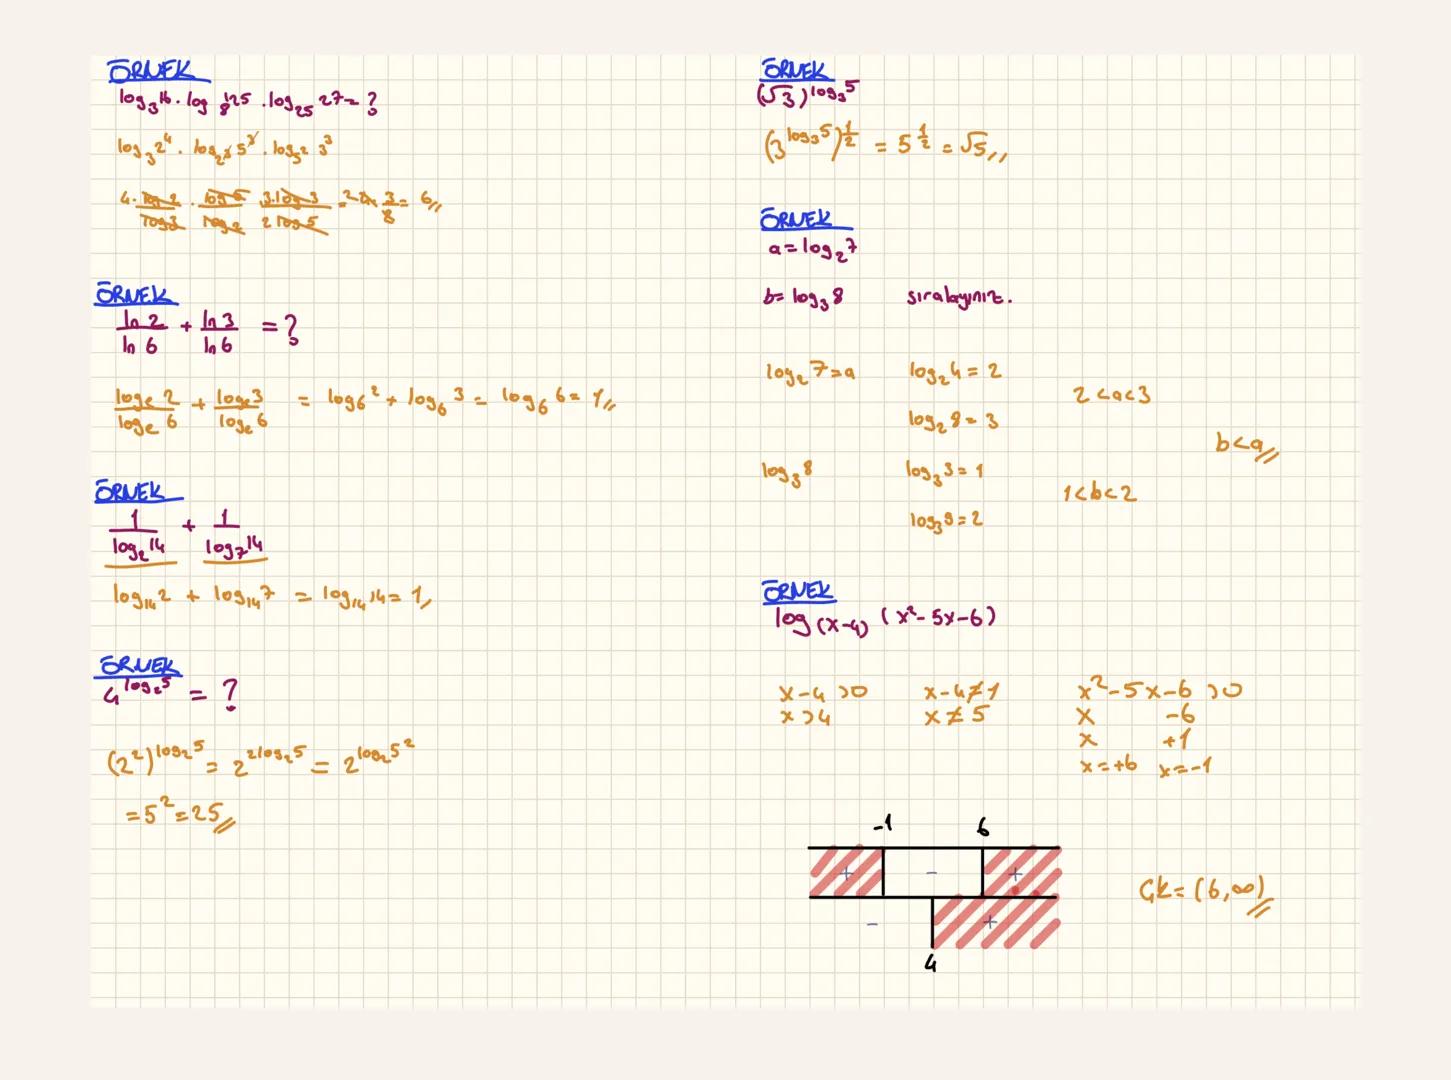 ÖRNEK
log₃16 · log₈125 · log₂₅27 = ?
log₃2⁴ · log₂³5³ · log₅² 3³
4 · log2/log3 · log5/log2 · 3·log3/2log5 = 6
ÖRNEK
ln 2/ln 6 + ln 3/ln 6 = ?
logₑ2/logₑ6 + logₑ3/logₑ6 = log₆2 + log₆3 = log₆6 = 1
ÖRNEK
1/log₂14 + 1/log₇14
log₁₄2 + log₁₄7 = log₁₄14 = 1
ÖRNEK
4^log₂5 = ?
(2²)^log₂5 = 2^2log₂5 = 2^log₂5²
= 5² = 25
ÖRNEK
(√3)^log₃5
(3^log₃5)^1/2 = 5^1/2 = √5
ÖRNEK
a = log₂7
b = log₃8 sıralayınız.
log₂7 = a log₂4 = 2
2 < a < 3
log₂8 = 3
b < a
log₃8 log₃3 = 1
1 < b < 2
log₃9 = 2
ÖRNEK
log(x-4) (x² - 5x - 6)
x - 4 > 0 x - 4 ≠ 1 x² - 5x - 6 > 0
x > 4 x ≠ 5 x -6
x +1
x = +6 x = -1
-1 6
+ - +
ÇK = (6, ∞)
- +
4